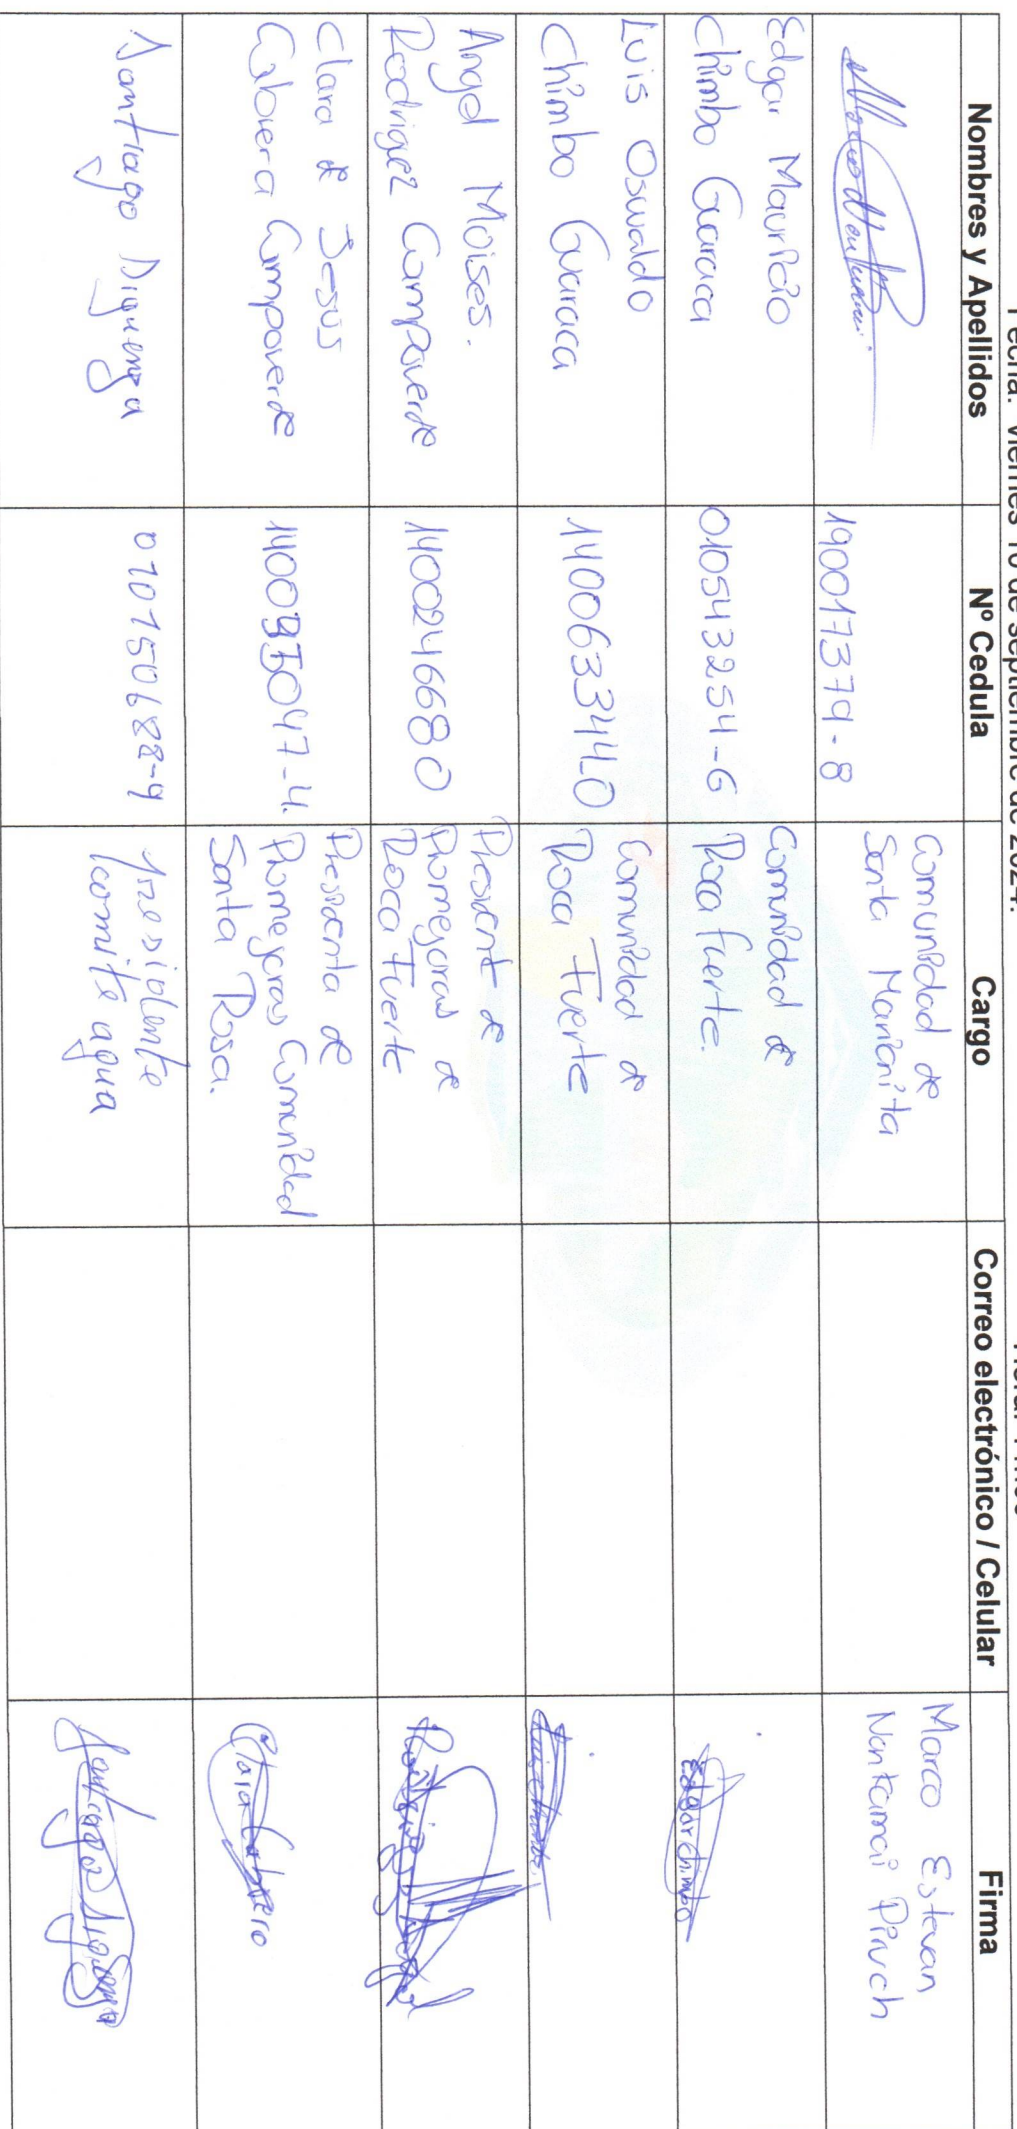 Fecha: Viernes 10 de septiembre de 2024.
Nombres y Apellidos Nº Cedula Cargo Correo electrónico / Celular Firma
190017379-8 Comunidad de Santa Marianita Marco Estevan Nantamai Piruch
Edgar Mauricio
Chimbo Guaraca
010543254-6
Comunidad de
Roca fuerte.
Edgar chimbo
Luis Oswaldo
Chimbo Guaraca
140063344-0
Comunidad de
Roca Fuerte
Angel Moises.
Rodriguez Campoverde
1400246680
President de
Promejoras de
Roca Fuerte
Clara de Jesus
Cabrera Campoverde
140095047-4.
Presidenta de
Promejoras Comunidad
Santa Rosa.
Clara Cabrera
Santiago Diguenza
010150688-9
Presidente
comite agua
Santiago